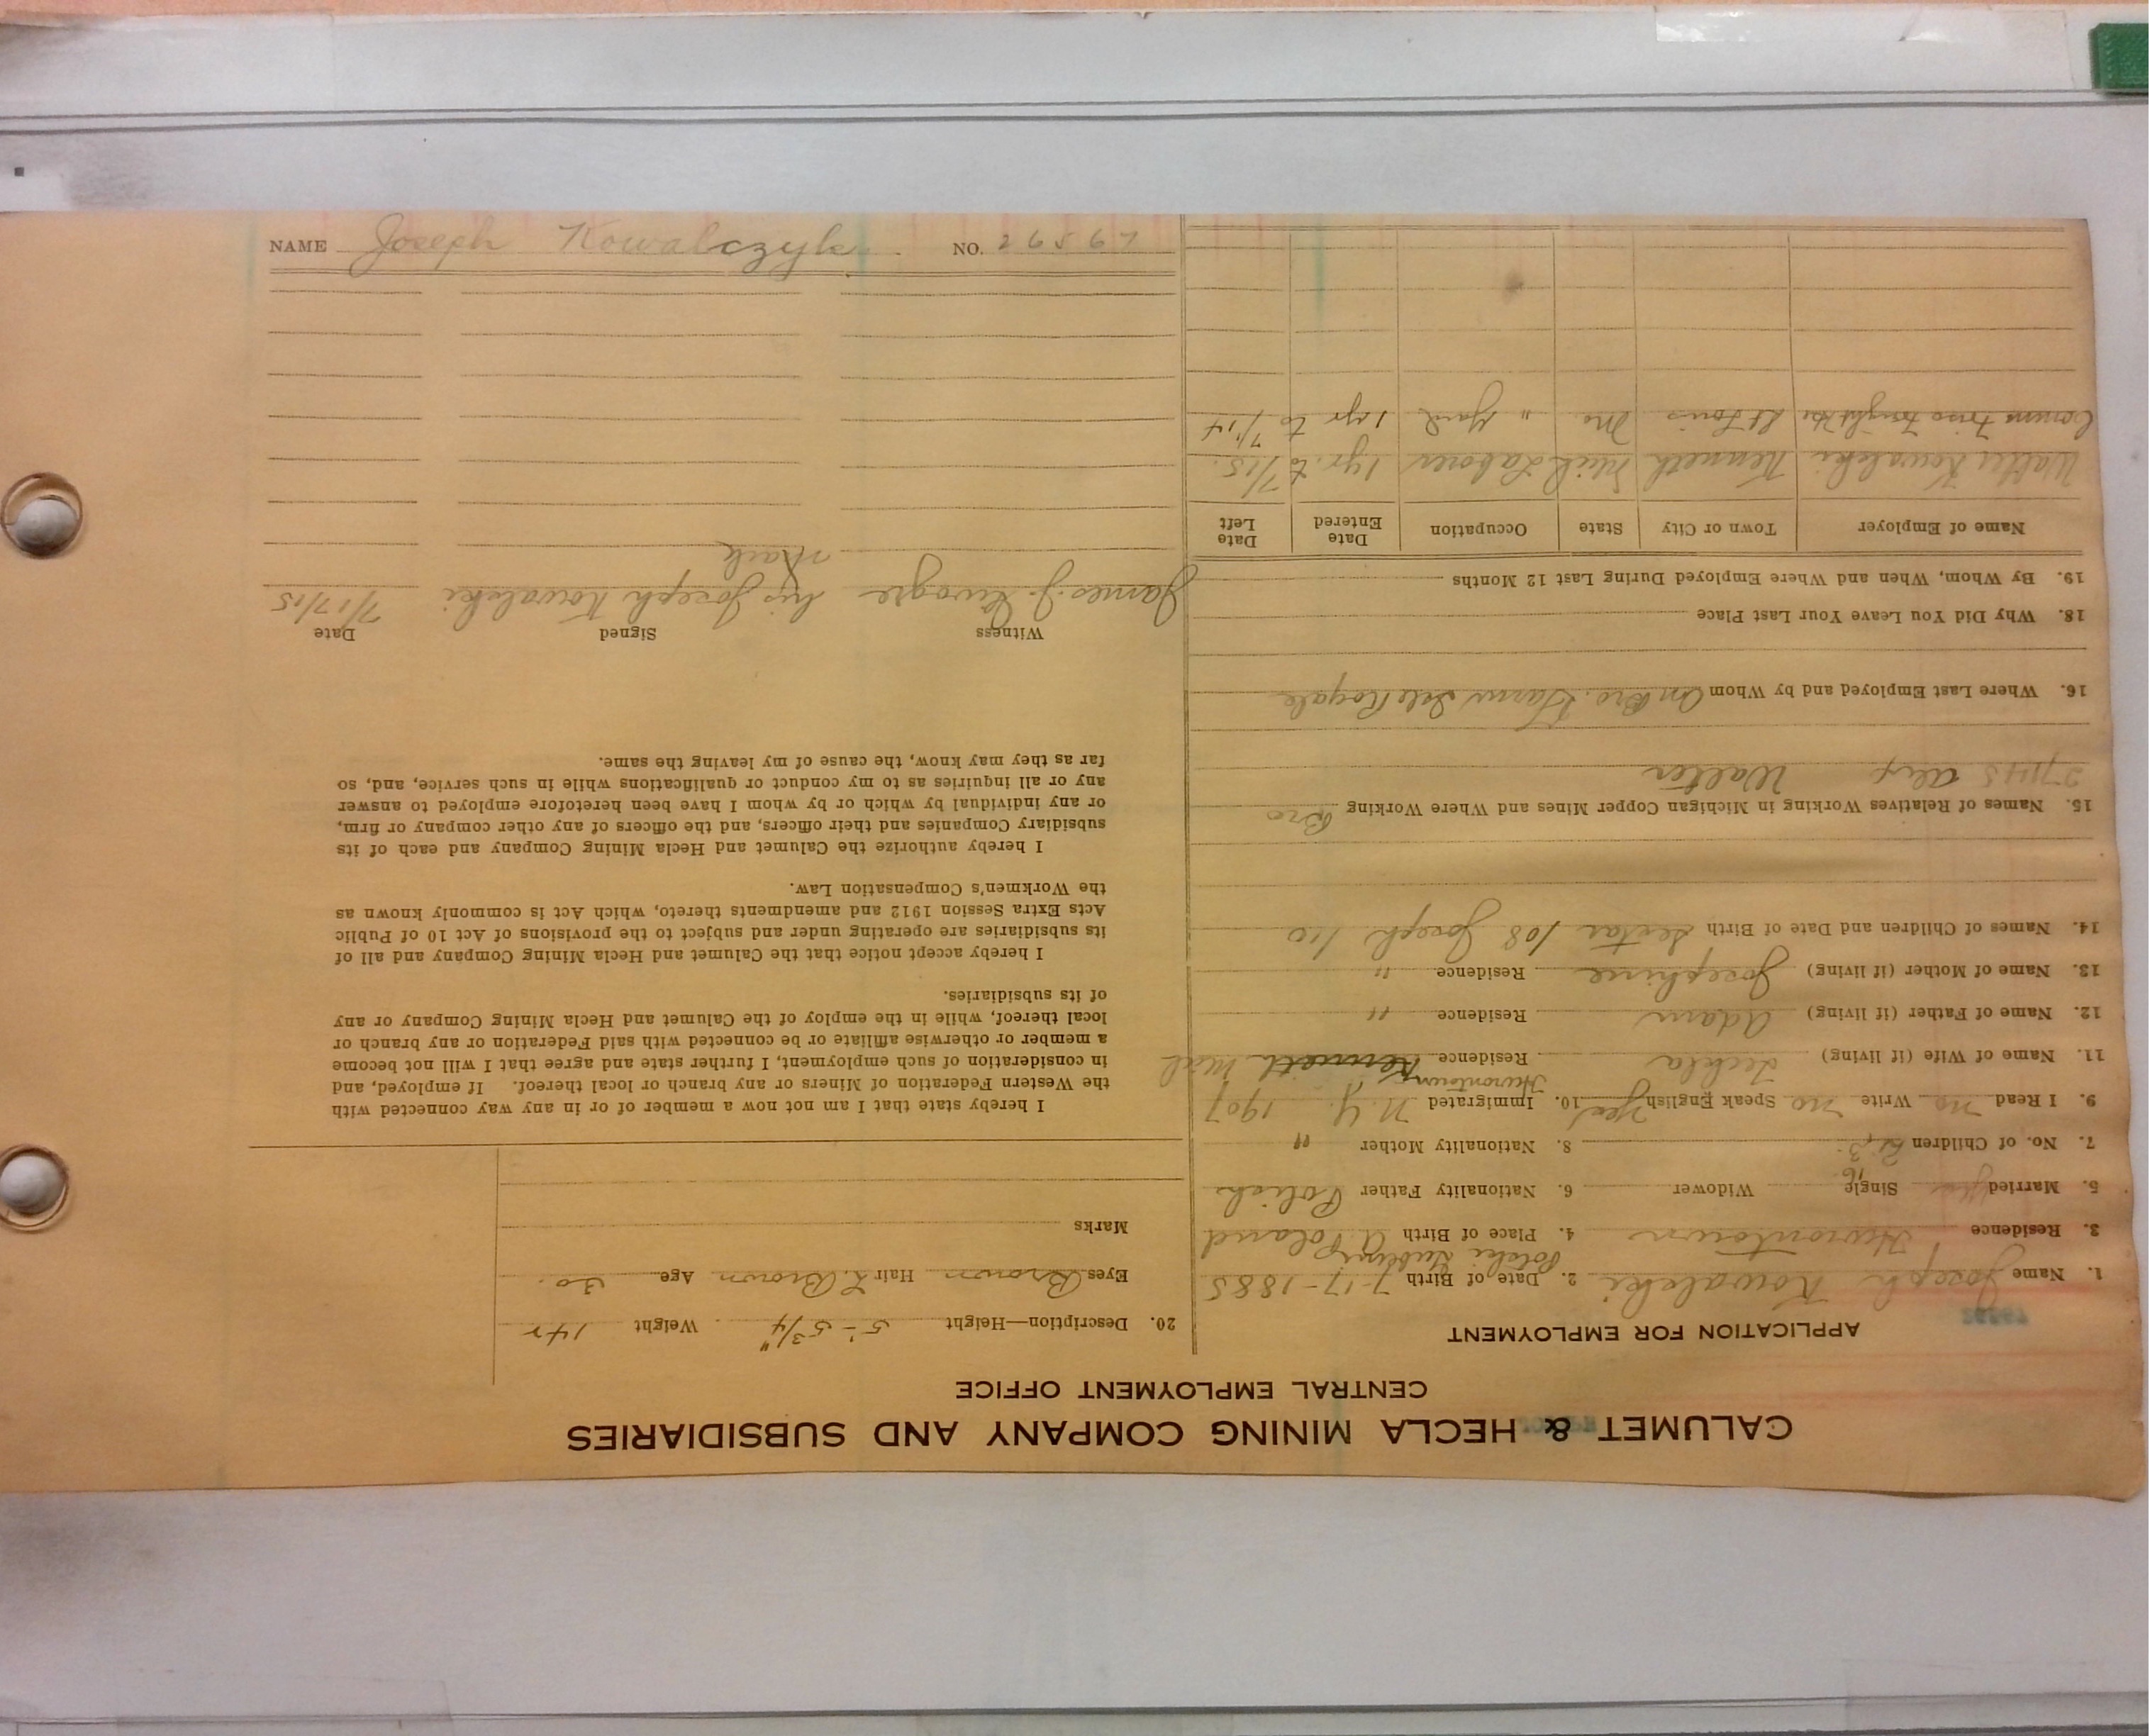 CALUMET & HECLA MINING COMPANY AND SUBSIDIARIES
CENTRAL EMPLOYMENT OFFICE
APPLICATION FOR EMPLOYMENT
1. Name Joseph Kowaleski 2. Date of Birth 7-17-1885
3. Residence Hurontown 4. Place of Birth Poland
5. Married Single Widower 6. Nationality Father Polish
7. No. of Children 8. Nationality Mother "
9. I Read no Write no Speak English Yes 10. Immigrated N.Y. 1907
Hurontown
11. Name of Wife (if living) Residence Kenneth Mich
12. Name of Father (if living) Adam Residence "
13. Name of Mother (if living) Josephine Residence "
14. Names of Children and Date of Birth 108 Joseph 110
15. Names of Relatives Working in Michigan Copper Mines and Where Working Bro
27145 Alex Walter
16. Where Last Employed and by Whom On Bro. Farm Isle Royale
18. Why Did You Leave Your Last Place
19. By Whom, When and Where Employed During Last 12 Months
Name of Employer Town or City State Occupation Date Entered Date Left
Walter Kowaleski Kenneth Mich Laborer 1 yr. to 7/15.
Frisco Freight Hse St Louis Mo " Yard 1 yr to 7/14
20. Description—Height 5'-5 3/4" Weight 142
Eyes Brown Hair L. Brown Age 30.
Marks
I hereby state that I am not now a member of or in any way connected with
the Western Federation of Miners or any branch or local thereof. If employed, and
in consideration of such employment, I further state and agree that I will not become
a member or otherwise affiliate or be connected with said Federation or any branch or
local thereof, while in the employ of the Calumet and Hecla Mining Company or any
of its subsidiaries.
I hereby accept notice that the Calumet and Hecla Mining Company and all of
its subsidiaries are operating under and subject to the provisions of Act 10 of Public
Acts Extra Session 1912 and amendments thereto, which Act is commonly known as
the Workmen's Compensation Law.
I hereby authorize the Calumet and Hecla Mining Company and each of its
subsidiary Companies and their officers, and the officers of any other company or firm,
or any individual by which or by whom I have been heretofore employed to answer
any or all inquiries as to my conduct or qualifications while in such service, and, so
far as they may know, the cause of my leaving the same.
Witness Signed Date
James J. his Joseph Kowaleski 7/17/15
X mark
NAME Joseph Kowalczyk. NO. 26567